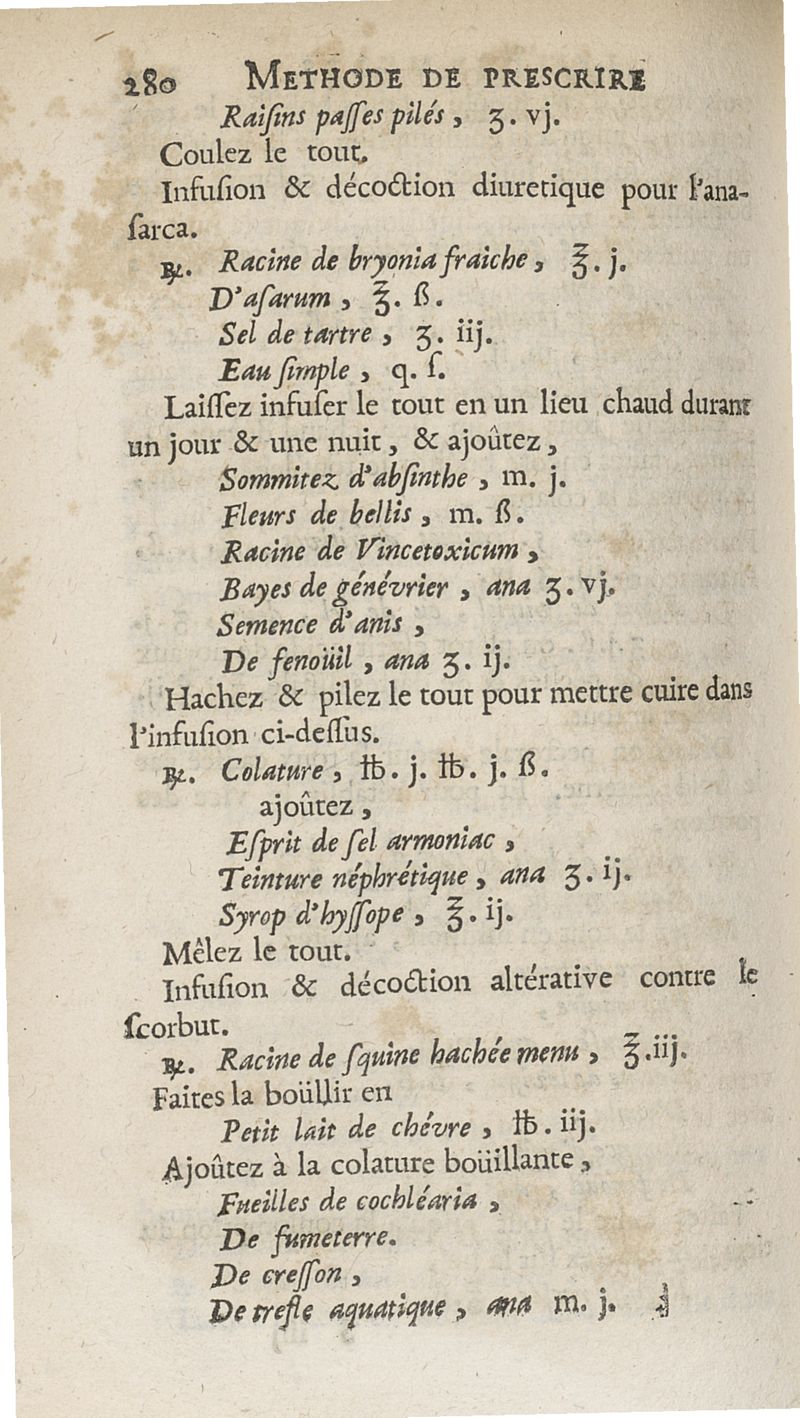 280 METHODE DE PRESCRIRE
Raiſins paſſes pilés, ʒ. vj.
Coulez le tout.
Infuſion & décoction diuretique pour l'ana-
ſarca.
℞. Racine de bryonia fraiche, ℥. j.
D'aſarum, ℥. ß.
Sel de tartre, ʒ. iij.
Eau ſimple, q. ſ.
Laiſſez infuſer le tout en un lieu chaud durant
un jour & une nuit, & ajoûtez,
Sommitez d'abſinthe, m. j.
Fleurs de bellis, m. ß.
Racine de Vincetoxicum,
Bayes de génévrier, ana ʒ. vj.
Semence d'anis,
De fenoüil, ana ʒ. ij.
Hachez & pilez le tout pour mettre cuire dans
l'infuſion ci-deſſus.
℞. Colature, ℔. j. ℔. j. ß.
ajoûtez,
Eſprit de ſel armoniac,
Teinture néphrétique, ana ʒ. ij.
Syrop d'hyſſope, ℥. ij.
Mêlez le tout.
Infuſion & décoction altérative contre le
ſcorbut.
℞. Racine de ſquine hachée menu, ℥. iij.
Faites la boüillir en
Petit lait de chévre, ℔. iij.
Ajoûtez à la colature boüillante,
Fueilles de cochléaria,
De fumeterre.
De creſſon,
De trefle aquatique, ana m. j.